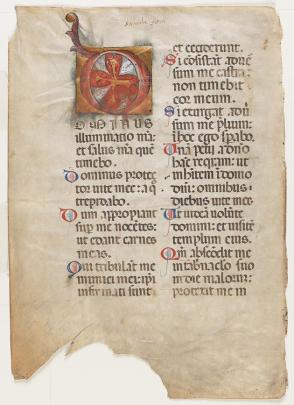 DOMINUS
illuminatio m̃a:
et salus m̃a quẽ
timebo.
Dominus protec
tor uite mee: a q̃
trepidabo.
Dum appropiant
sup me nocẽtes:
ut edant carnes
meas.
Qui tribulãt me
inimici mei: ip̃i
infirmati sunt
et ceciderunt.
Si cõsistãt aduẽ
sum me castra:
non timebit
cor meum.
Si exurgat adũ
sum me plium:
ĩ hoc ego spabo.
Unã petii a dño
hãc reqram: ut
inhitem ĩ domo
dñi: omnibus
diebus uite mee
Ut uideã uolũtẽ
domini: et uisitẽ
templum eius.
Qm̃ abscõdit me
in tabnaclo suo
in die malorum:
protexit me in